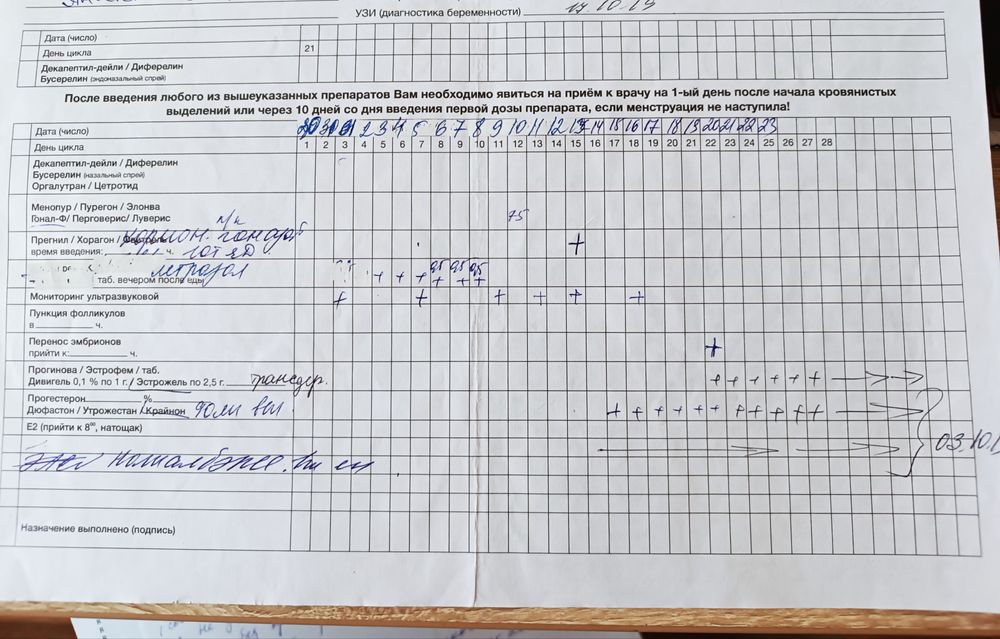 УЗИ (диагностика беременности) 17.10.19
Дата (число)
День цикла 21
Декапептил-дейли / Диферелин
Бусерелин (эндоназальный спрей)
После введения любого из вышеуказанных препаратов Вам необходимо явиться на приём к врачу на 1-ый день после начала кровянистых
выделений или через 10 дней со дня введения первой дозы препарата, если менструация не наступила!
Дата (число) 30 31 2 3 4 5 6 7 8 9 10 11 12 13 14 15 16 17 18 19 20 21 22 23
День цикла 1 2 3 4 5 6 7 8 9 10 11 12 13 14 15 16 17 18 19 20 21 22 23 24 25 26 27 28
Декапептил-дейли / Диферелин
Бусерелин (назальный спрей)
Оргалутран / Цетротид
Менопур / Пурегон / Элонва
Гонал-Ф/ Перговерис/ Луверис п/к 75
Прегнил / Хорагон / +
время введения: ч.
летрозол 0,5 0,5 0,5
таб. вечером после еды + + + + + +
Мониторинг ультразвуковой + + + + + +
Пункция фолликулов
в ч.
Перенос эмбрионов
прийти к: ч. +
Прогинова / Эстрофем / таб.
Дивигель 0,1 % по 1 г. / Эстрожель по 2,5 г. трансдер. + + + + + +
Прогестерон %
Дюфастон / Утрожестан / Крайнон + + + + + + + + + + +
Е2 (прийти к 8⁰⁰, натощак)
03.10.1
Назначение выполнено (подпись)